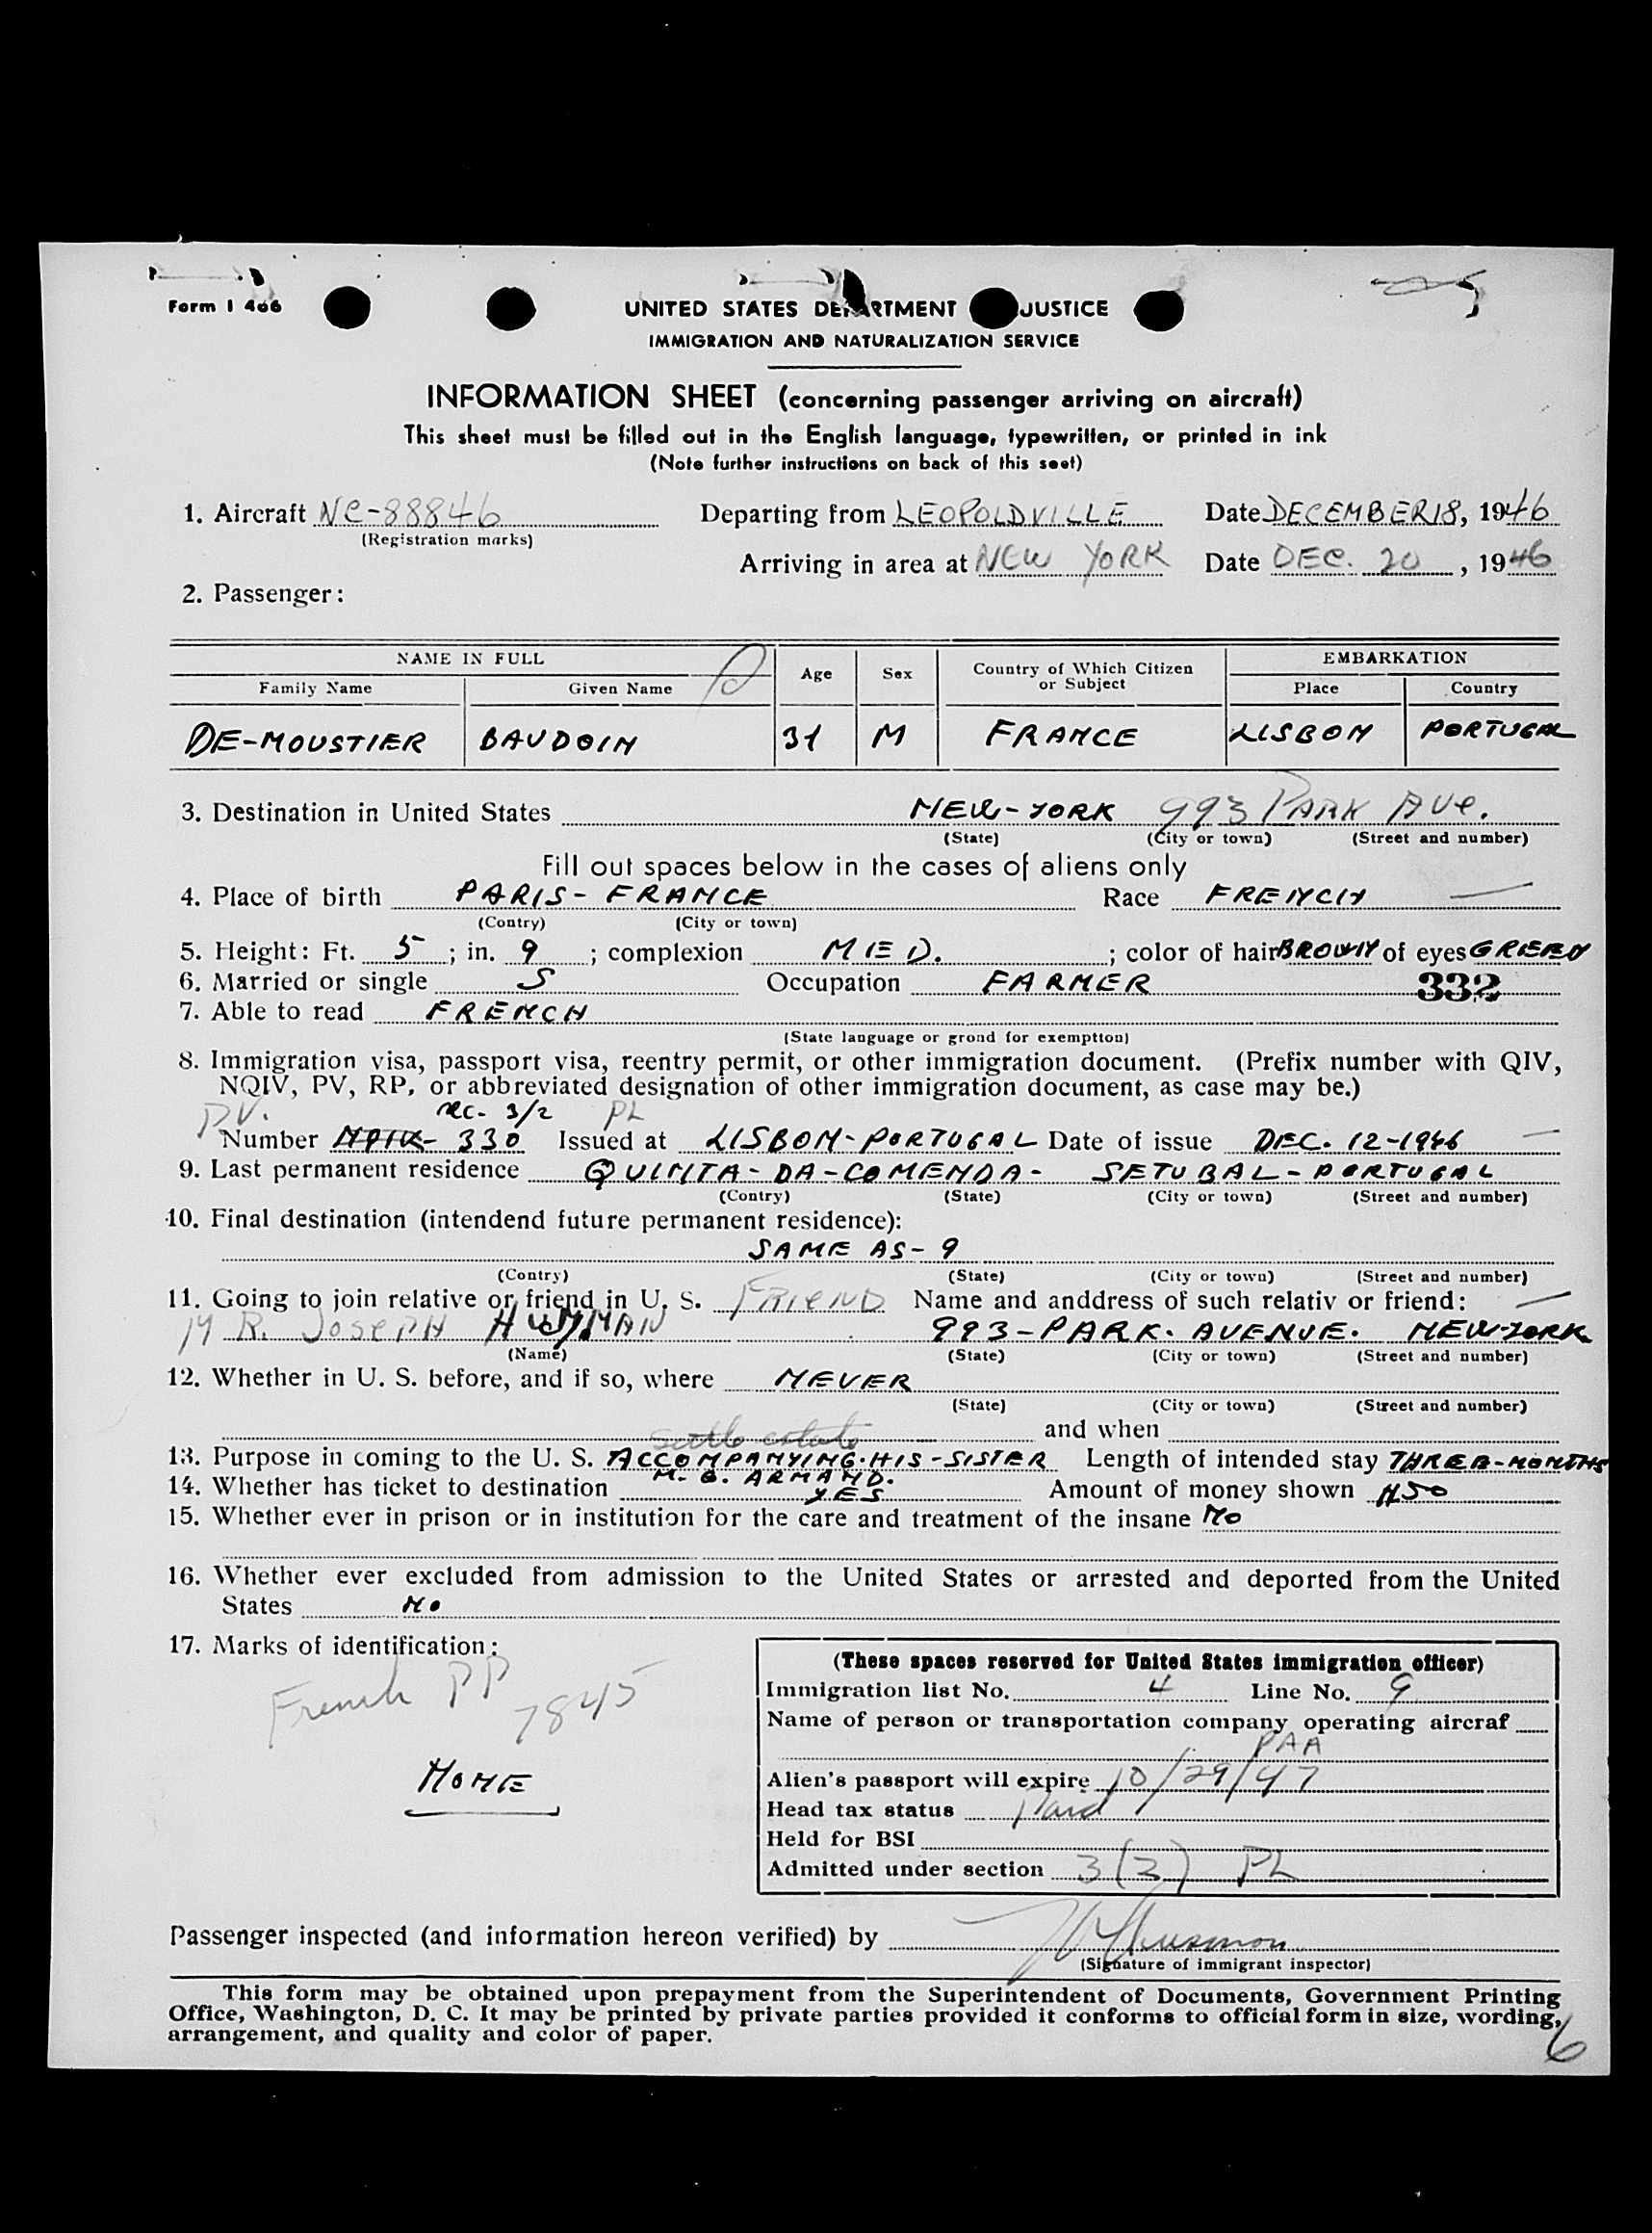 Form I 466
UNITED STATES DEPARTMENT JUSTICE
IMMIGRATION AND NATURALIZATION SERVICE
INFORMATION SHEET (concerning passenger arriving on aircraft)
This sheet must be filled out in the English language, typewritten, or printed in ink
(Note further instructions on back of this seet)
1. Aircraft NC-88846 Departing from LEOPOLDVILLE Date DECEMBER 18, 1946
(Registration marks)
Arriving in area at NEW YORK Date DEC. 20, 1946
2. Passenger:
NAME IN FULL Age Sex Country of Which Citizen or Subject EMBARKATION
Family Name Given Name Place Country
DE-MOUSTIER BAUDOIN 31 M FRANCE LISBON PORTUGAL
3. Destination in United States NEW-YORK 993 PARK AVE.
(State) (City or town) (Street and number)
Fill out spaces below in the cases of aliens only
4. Place of birth PARIS - FRANCE Race FRENCH
(Contry) (City or town)
5. Height: Ft. 5 ; in. 9 ; complexion MED. ; color of hair BROWN of eyes GREEN
6. Married or single S Occupation FARMER 332
7. Able to read FRENCH
(State language or grond for exemptton)
8. Immigration visa, passport visa, reentry permit, or other immigration document. (Prefix number with QIV,
NQIV, PV, RP, or abbreviated designation of other immigration document, as case may be.)
PV. sec. 3/2 PL
Number 330 Issued at LISBON-PORTUGAL Date of issue DEC. 12-1946
9. Last permanent residence QUINTA-DA-COMENDA- SETUBAL-PORTUGAL
(Contry) (State) (City or town) (Street and number)
10. Final destination (intendend future permanent residence):
SAME AS-9
(Contry) (State) (City or town) (Street and number)
11. Going to join relative or friend in U. S. FRIEND Name and anddress of such relativ or friend:
MR. JOSEPH 993-PARK. AVENUE. NEW-YORK
(Name) (State) (City or town) (Street and number)
12. Whether in U. S. before, and if so, where NEVER
(State) (City or town) (Street and number)
settle estate and when
13. Purpose in coming to the U. S. ACCOMPANYING.HIS-SISTER Length of intended stay THREE-MONTHS
M. G. ARMAND.
14. Whether has ticket to destination YES Amount of money shown $50
15. Whether ever in prison or in institution for the care and treatment of the insane No
16. Whether ever excluded from admission to the United States or arrested and deported from the United
States No
17. Marks of identification:
French PP 7845
NONE
(These spaces reserved for United States immigration officer)
Immigration list No. 4 Line No. 9
Name of person or transportation company operating aircraf
PAA
Alien's passport will expire 10/29/47
Head tax status Paid
Held for BSI
Admitted under section 3(3) PL
Passenger inspected (and information hereon verified) by
(Signature of immigrant inspector)
This form may be obtained upon prepayment from the Superintendent of Documents, Government Printing
Office, Washington, D. C. It may be printed by private parties provided it conforms to official form in size, wording,
arrangement, and quality and color of paper.
6